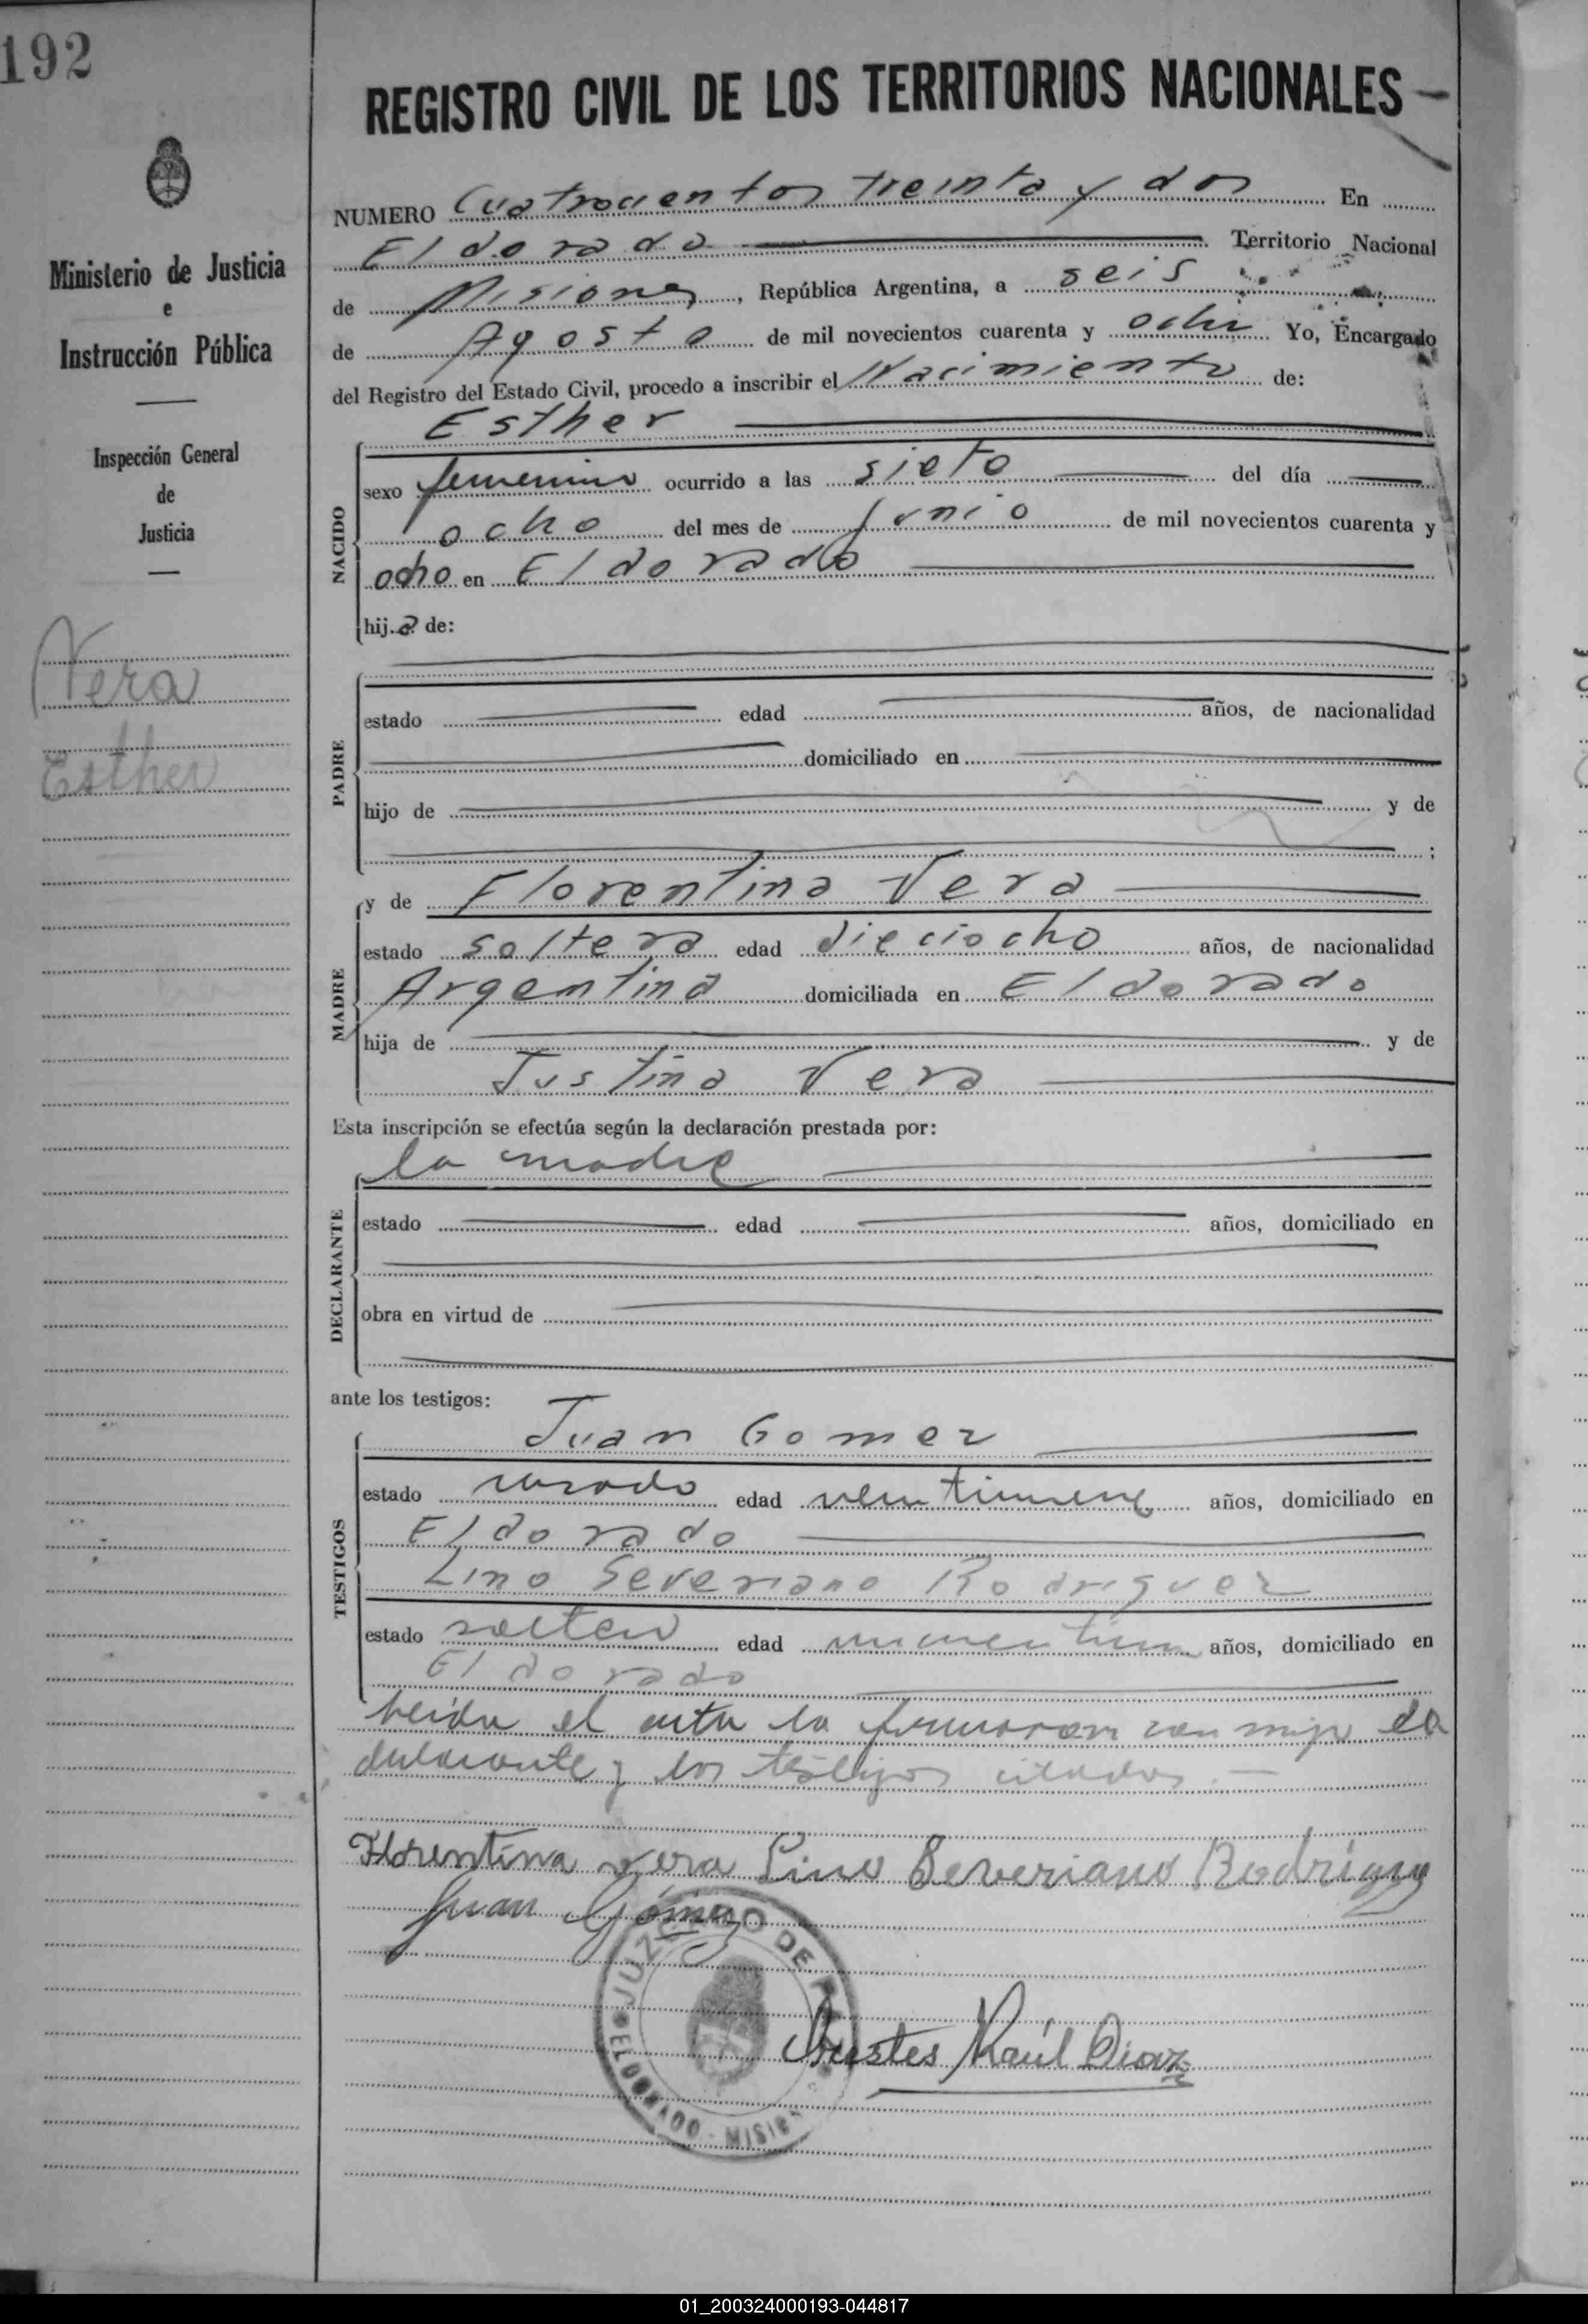 192
REGISTRO CIVIL DE LOS TERRITORIOS NACIONALES
Ministerio de Justicia
e
Instrucción Pública
Inspección General
de
Justicia
Vera
Esther
NUMERO Cuatrocientos treinta y dos En
Eldorado Territorio Nacional
de Misiones, República Argentina, a seis
de Agosto de mil novecientos cuarenta y ocho Yo, Encargado
del Registro del Estado Civil, procedo a inscribir el Nacimiento de:
NACIDO
Esther
sexo femenino ocurrido a las siete del día
ocho del mes de Junio de mil novecientos cuarenta y
ocho en Eldorado
hija de:
PADRE
estado edad años, de nacionalidad
domiciliado en
hijo de y de
;
MADRE
y de Florentina Vera
estado soltera edad dieciocho años, de nacionalidad
Argentina domiciliada en Eldorado
hija de y de
Justina Vera
Esta inscripción se efectúa según la declaración prestada por:
DECLARANTE
la madre
estado edad años, domiciliado en
obra en virtud de
ante los testigos:
TESTIGOS
Juan Gomez
estado casado edad años, domiciliado en
Eldorado
Lino Severiano Rodriguez
estado soltero edad años, domiciliado en
Eldorado
Leída el acta la firmaron con migo la
declarante y los testigos citados.—
Florentina Vera Lino Severiano Rodriguez
Juan Gómez
JUZGADO DE
ELDORADO - MISI
Orestes Raúl Diaz
01_200324000193-044817